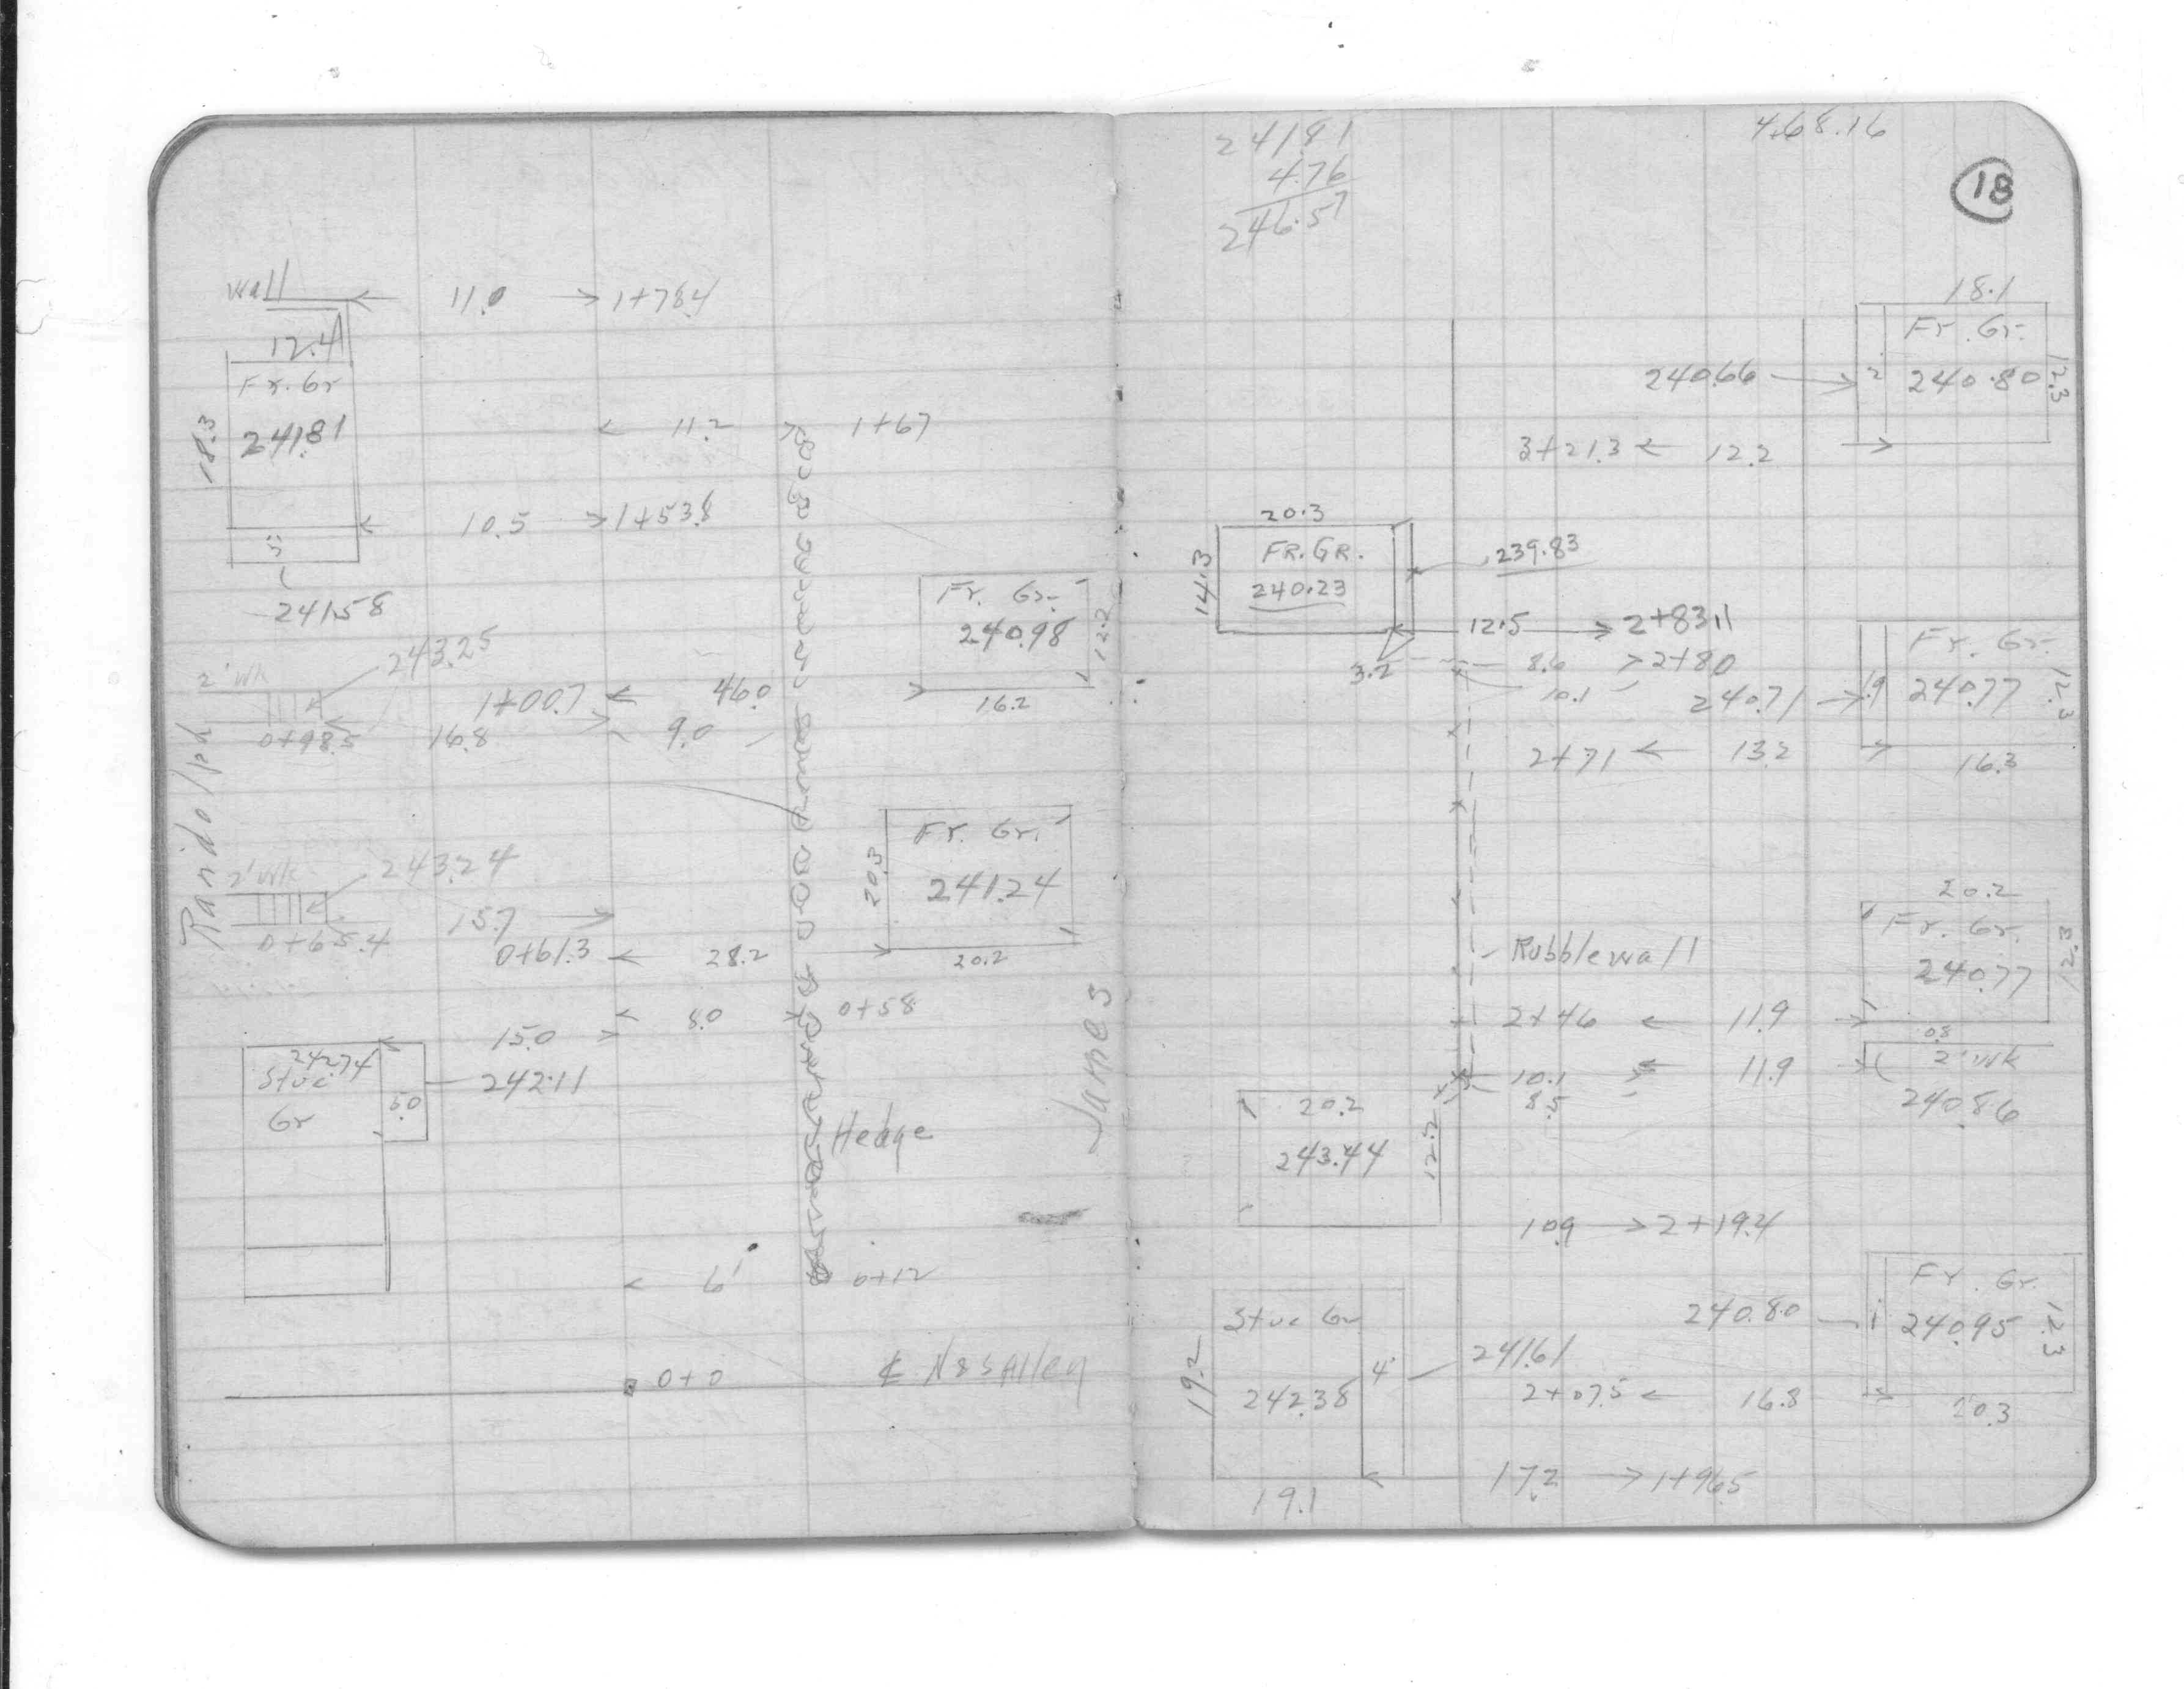 wall 11.0 1+78.4
12.4
Fr. Gr
241.81
18.3
11.2 1+67
10.5 1+53.8
5
241.58
Fr. Gr.
240.98
12.2
16.2
243.25
2' Wk
1+00.7 46.0
0+98.5 16.8 9.0
Randolph
Fr. Gr.
241.24
20.3
20.2
243.24
2' Wk
15.7
0+65.4
0+61.3 28.2
8.0 0+58
15.0
242.74
Stuc
Gr
5.0
242.11
James
Hedge
6' 0+12
0+0 ℄ N & S Alley
241.81
4.76
246.57
4.68.16
18
18.1
Fr. Gr.
240.66 2 240.80
12.3
3+21.3 12.2
20.3
FR. GR.
240.23
14.3
239.83
12.5 2+83.1
3.2 8.6 2+80
10.1
Fr. Gr.
240.71 1.9 240.77
12.3
2+71 13.2
16.3
20.2
Fr. Gr.
240.77
12.3
Rubble wall
2+46 11.9
0.8
2' Wk
10.1 11.9
8.5
240.86
20.2
243.44
12.2
10.9 2+19.4
Fr. Gr.
240.80 1 240.95
12.3
Stuc Gr
242.38
19.2
4'
241.61
2+07.5 16.8
20.3
17.2 1+96.5
19.1